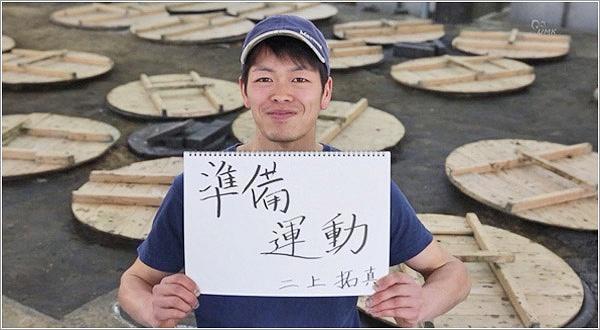 準備
運動
二上拓真